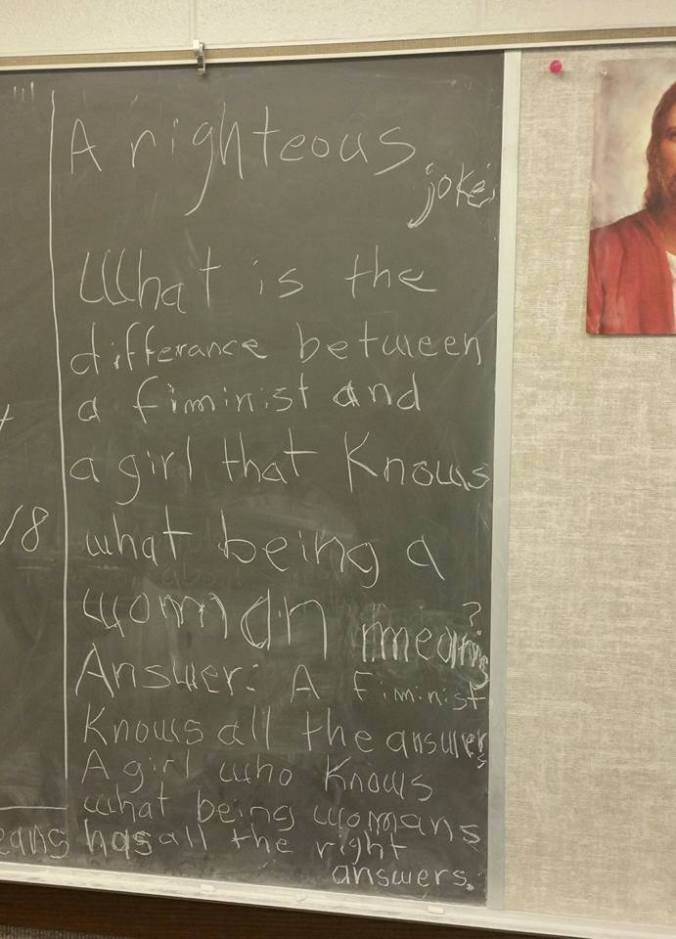 A righteous
joke:
What is the
differance between
a fiminist and
a girl that Knows
what being a
woman means?
Answer: A Fiminist
Knows all the answers
A girl who Knows
what being womans
eans has all the right
answers.
/8